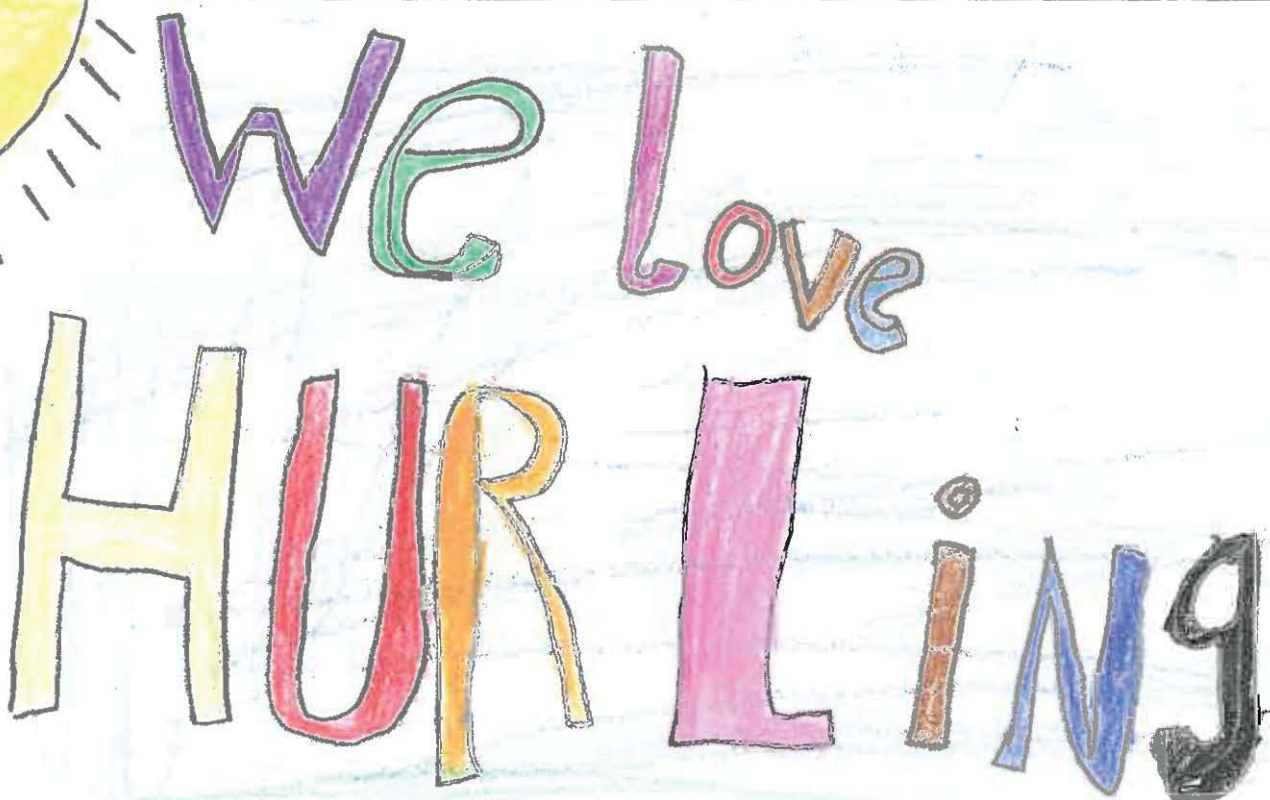 We love
HURLiNg